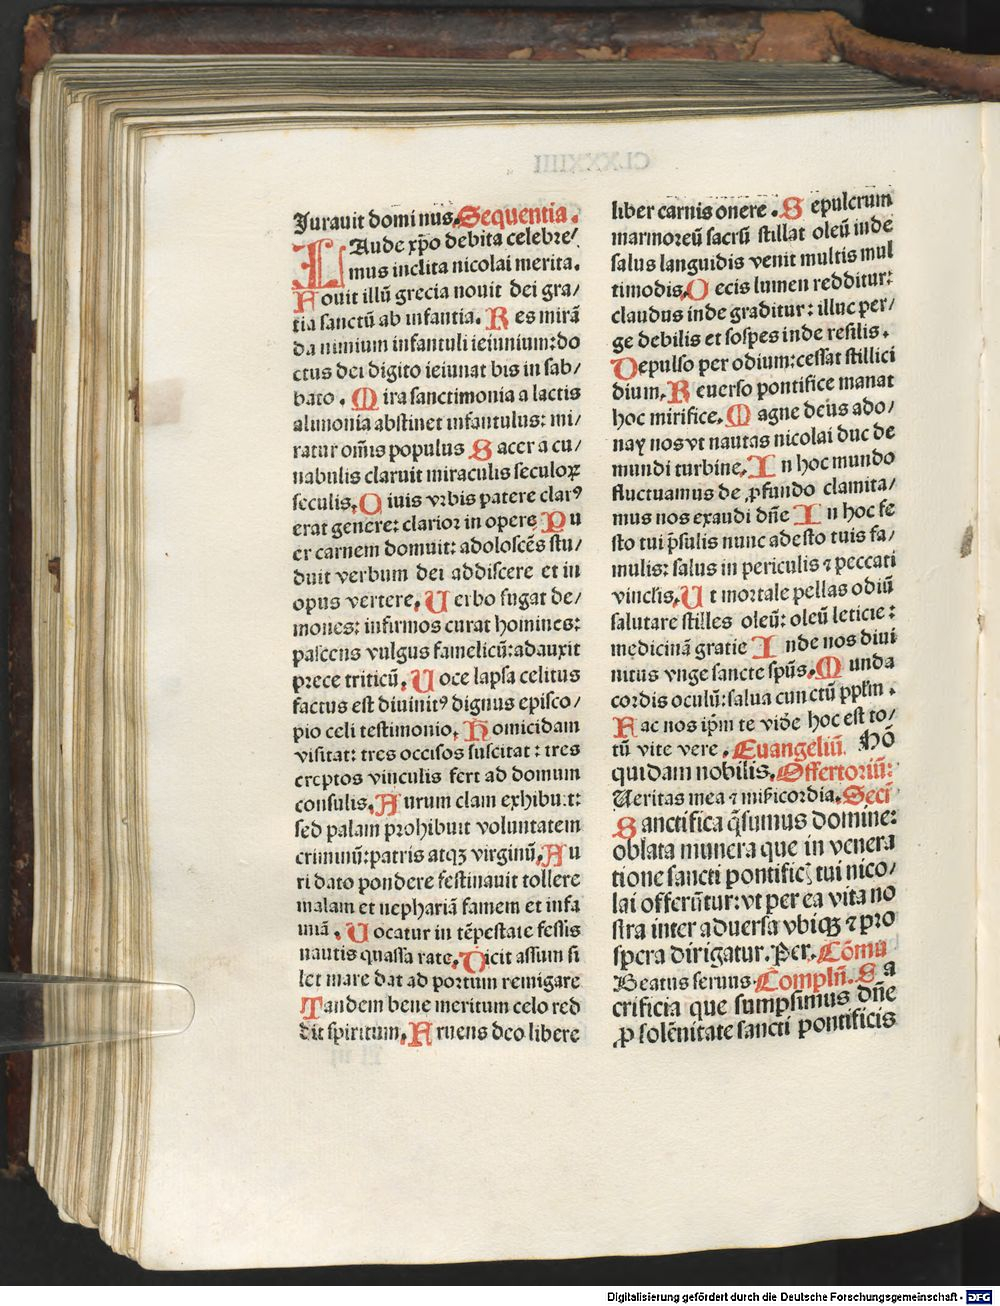 Jurauit dominus. Sequentia.
LAude xp̄o debita celebre/
mus inclita nicolai merita.
Nouit illū grecia nouit dei gra/
tia sanctū ab infantia. Res mirā
da nimium infantuli ieiunium: do
ctus dei digito ieiunat bis in sab/
bato. Mira sanctimonia a lactis
alimonia abstinet infantulus: mi/
ratur om̄is populus Sacer a cu/
nabulis claruit miraculis seculoꝝ
seculis. Ciuis vrbis patere clarꝰ
erat genere: clarior in opere Pu
er carnem domuit: adoloscēs stu/
duit verbum dei addiscere et in
opus vertere. Uerbo fugat de/
mones: infirmos curat homines:
pascens vulgus famelicū: adauxit
prece triticū. Uoce lapsa celitus
factus est diuinitꝰ dignus episco/
pio celi testimonio. Homicidam
visitat: tres occisos suscitat: tres
ereptos vinculis fert ad domum
consulis. Aurum clam exhibuit:
sed palam prohibuit voluntatem
criminū: patris atqꝫ virginū. Au
ri dato pondere festinauit tollere
malam et nephariā famem et infa
miā. Uocatur in tēpestate fessis
nautis quassa rate. Dicit assum si
let mare dat ad portum remigare
Tandem bene meritum celo red
dit spiritum. Aruens deo libere
liber carnis onere. Sepulcrum
marmoreū sacrū stillat oleū inde
salus languidis venit multis mul
timodis. Cecis lumen redditur:
claudus inde graditur: illuc per/
ge debilis et sospes inde resilis.
Depulso per odium: cessat stillici
dium. Reuerso pontifice manat
hoc mirifice. Magne deus ado/
nay nos vt nautas nicolai duc de
mundi turbine. In hoc mundo
fluctuamus de ꝓfundo clamita/
mus nos exaudi dn̄e In hoc fe
sto tui p̄sulis nunc adesto tuis fa/
mulis: salus in periculis ⁊ peccati
vinclis. Ut mortale pellas odiū
salutare stilles oleū: oleū leticie:
medicinā gratie Inde nos diui
nitus vnge sancte spūs. Munda
cordis oculū: salua cunctū pplm̄.
Fac nos ip̄m te vidē hoc est to/
tū vite vere. Euangeliū. Hō
quidam nobilis. Offertoriū:
Ueritas mea ⁊ mis̄icordia. Secī
Sanctifica q̄sumus domine:
oblata munera que in venera
tione sancti pontificis tui nico/
lai offerūtur: vt per ea vita no
stra inter aduersa vbiqꝫ ⁊ pro
spera dirigatur. Per. Cōmu
Beatus seruus. Compln̄. Sa
crificia que sumpsimus dn̄e
ꝓ solēnitate sancti pontificis
CLXXXIIII
Digitalisierung gefördert durch die Deutsche Forschungsgemeinschaft - DFG